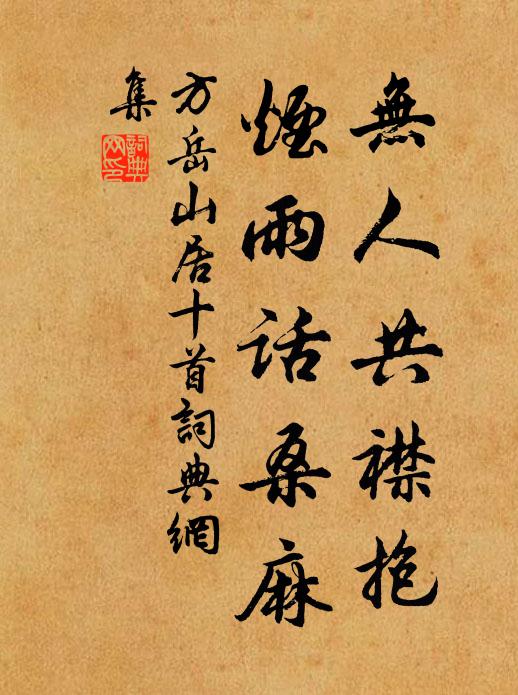 無人共襟抱
煙雨話桑麻
方岳山居十首詞典網
集
詞典網印